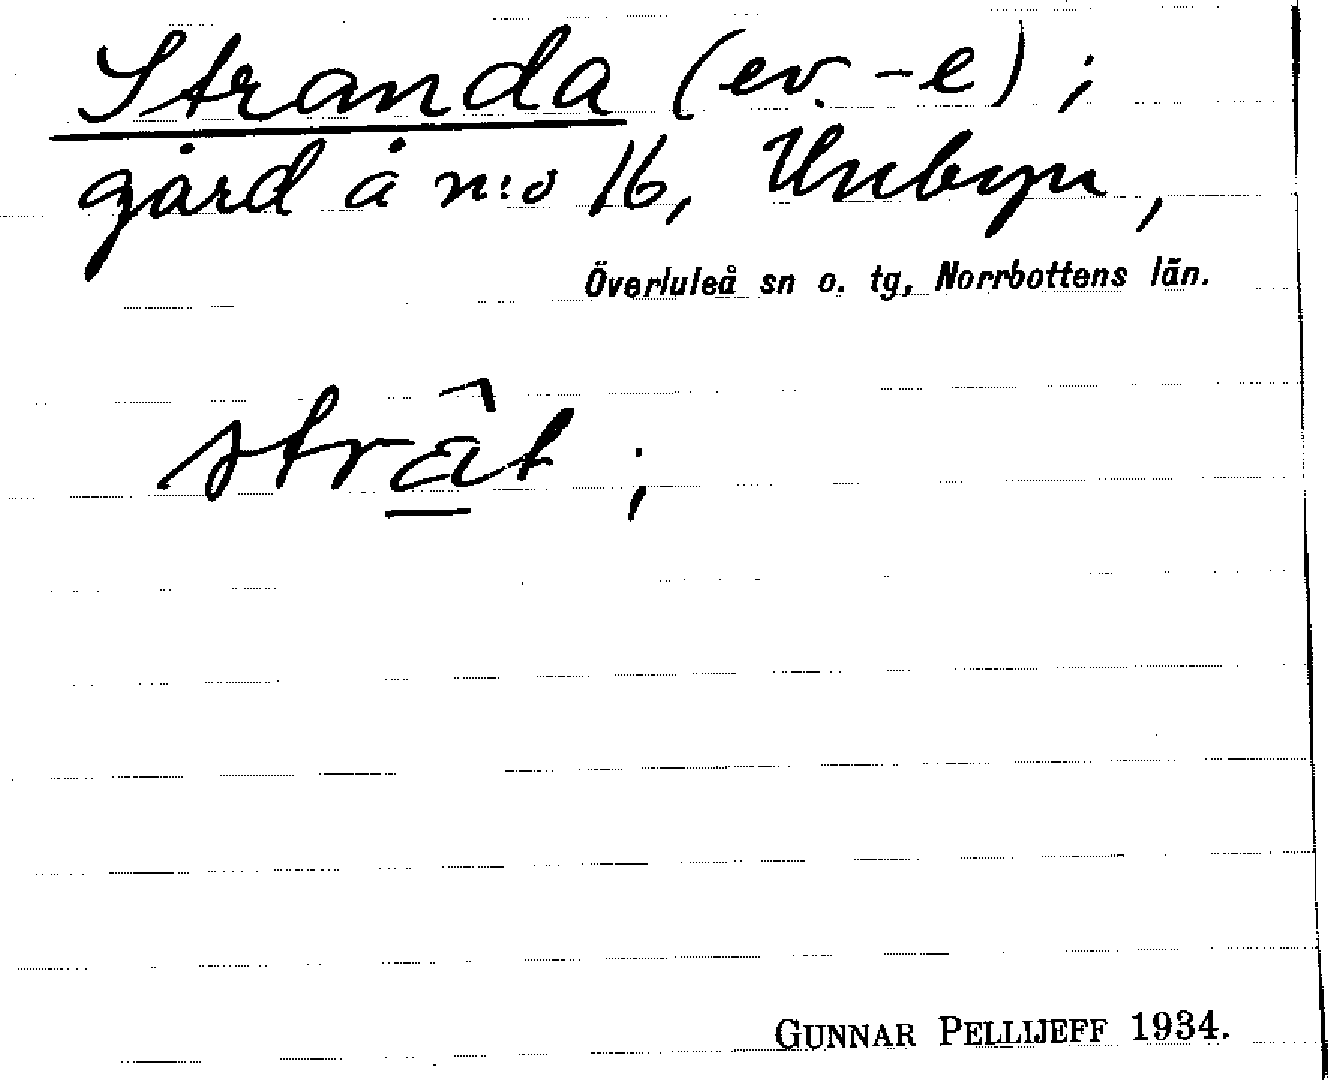 Stranda (ev. -e) ;
gård å n:o 16, Unbyn,
Överluleå sn o. tg, Norrbottens län.
strât ;
GUNNAR PELLIJEFF 1934.